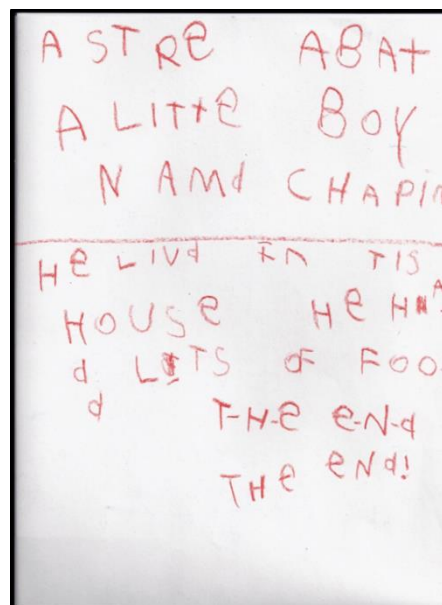 A STRe ABAt
A LITTe BOY
N AMd CHAPIN
He LIVd IN TIS
HOUSe He HA
d LOTS OF FOO
d T-H-e e-N-d
THe eNd!